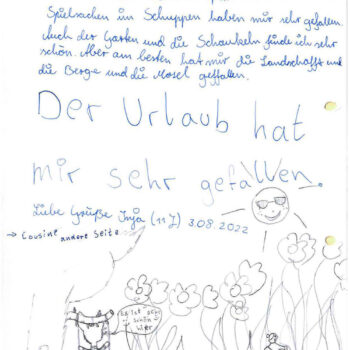 Spielsachen im Schuppen haben mir sehr gefallen.
Auch der Garten und die Schaukeln finde ich sehr
schön. Aber am besten hat mir die Landschafft und
die Berge und die Mosel geffallen.
Der Urlaub hat
mir sehr gefallen.
Liebe Grüße Inja (11J) 3.08.2022
→ Cousine andere Seite
Es ist sehr
schön
hier